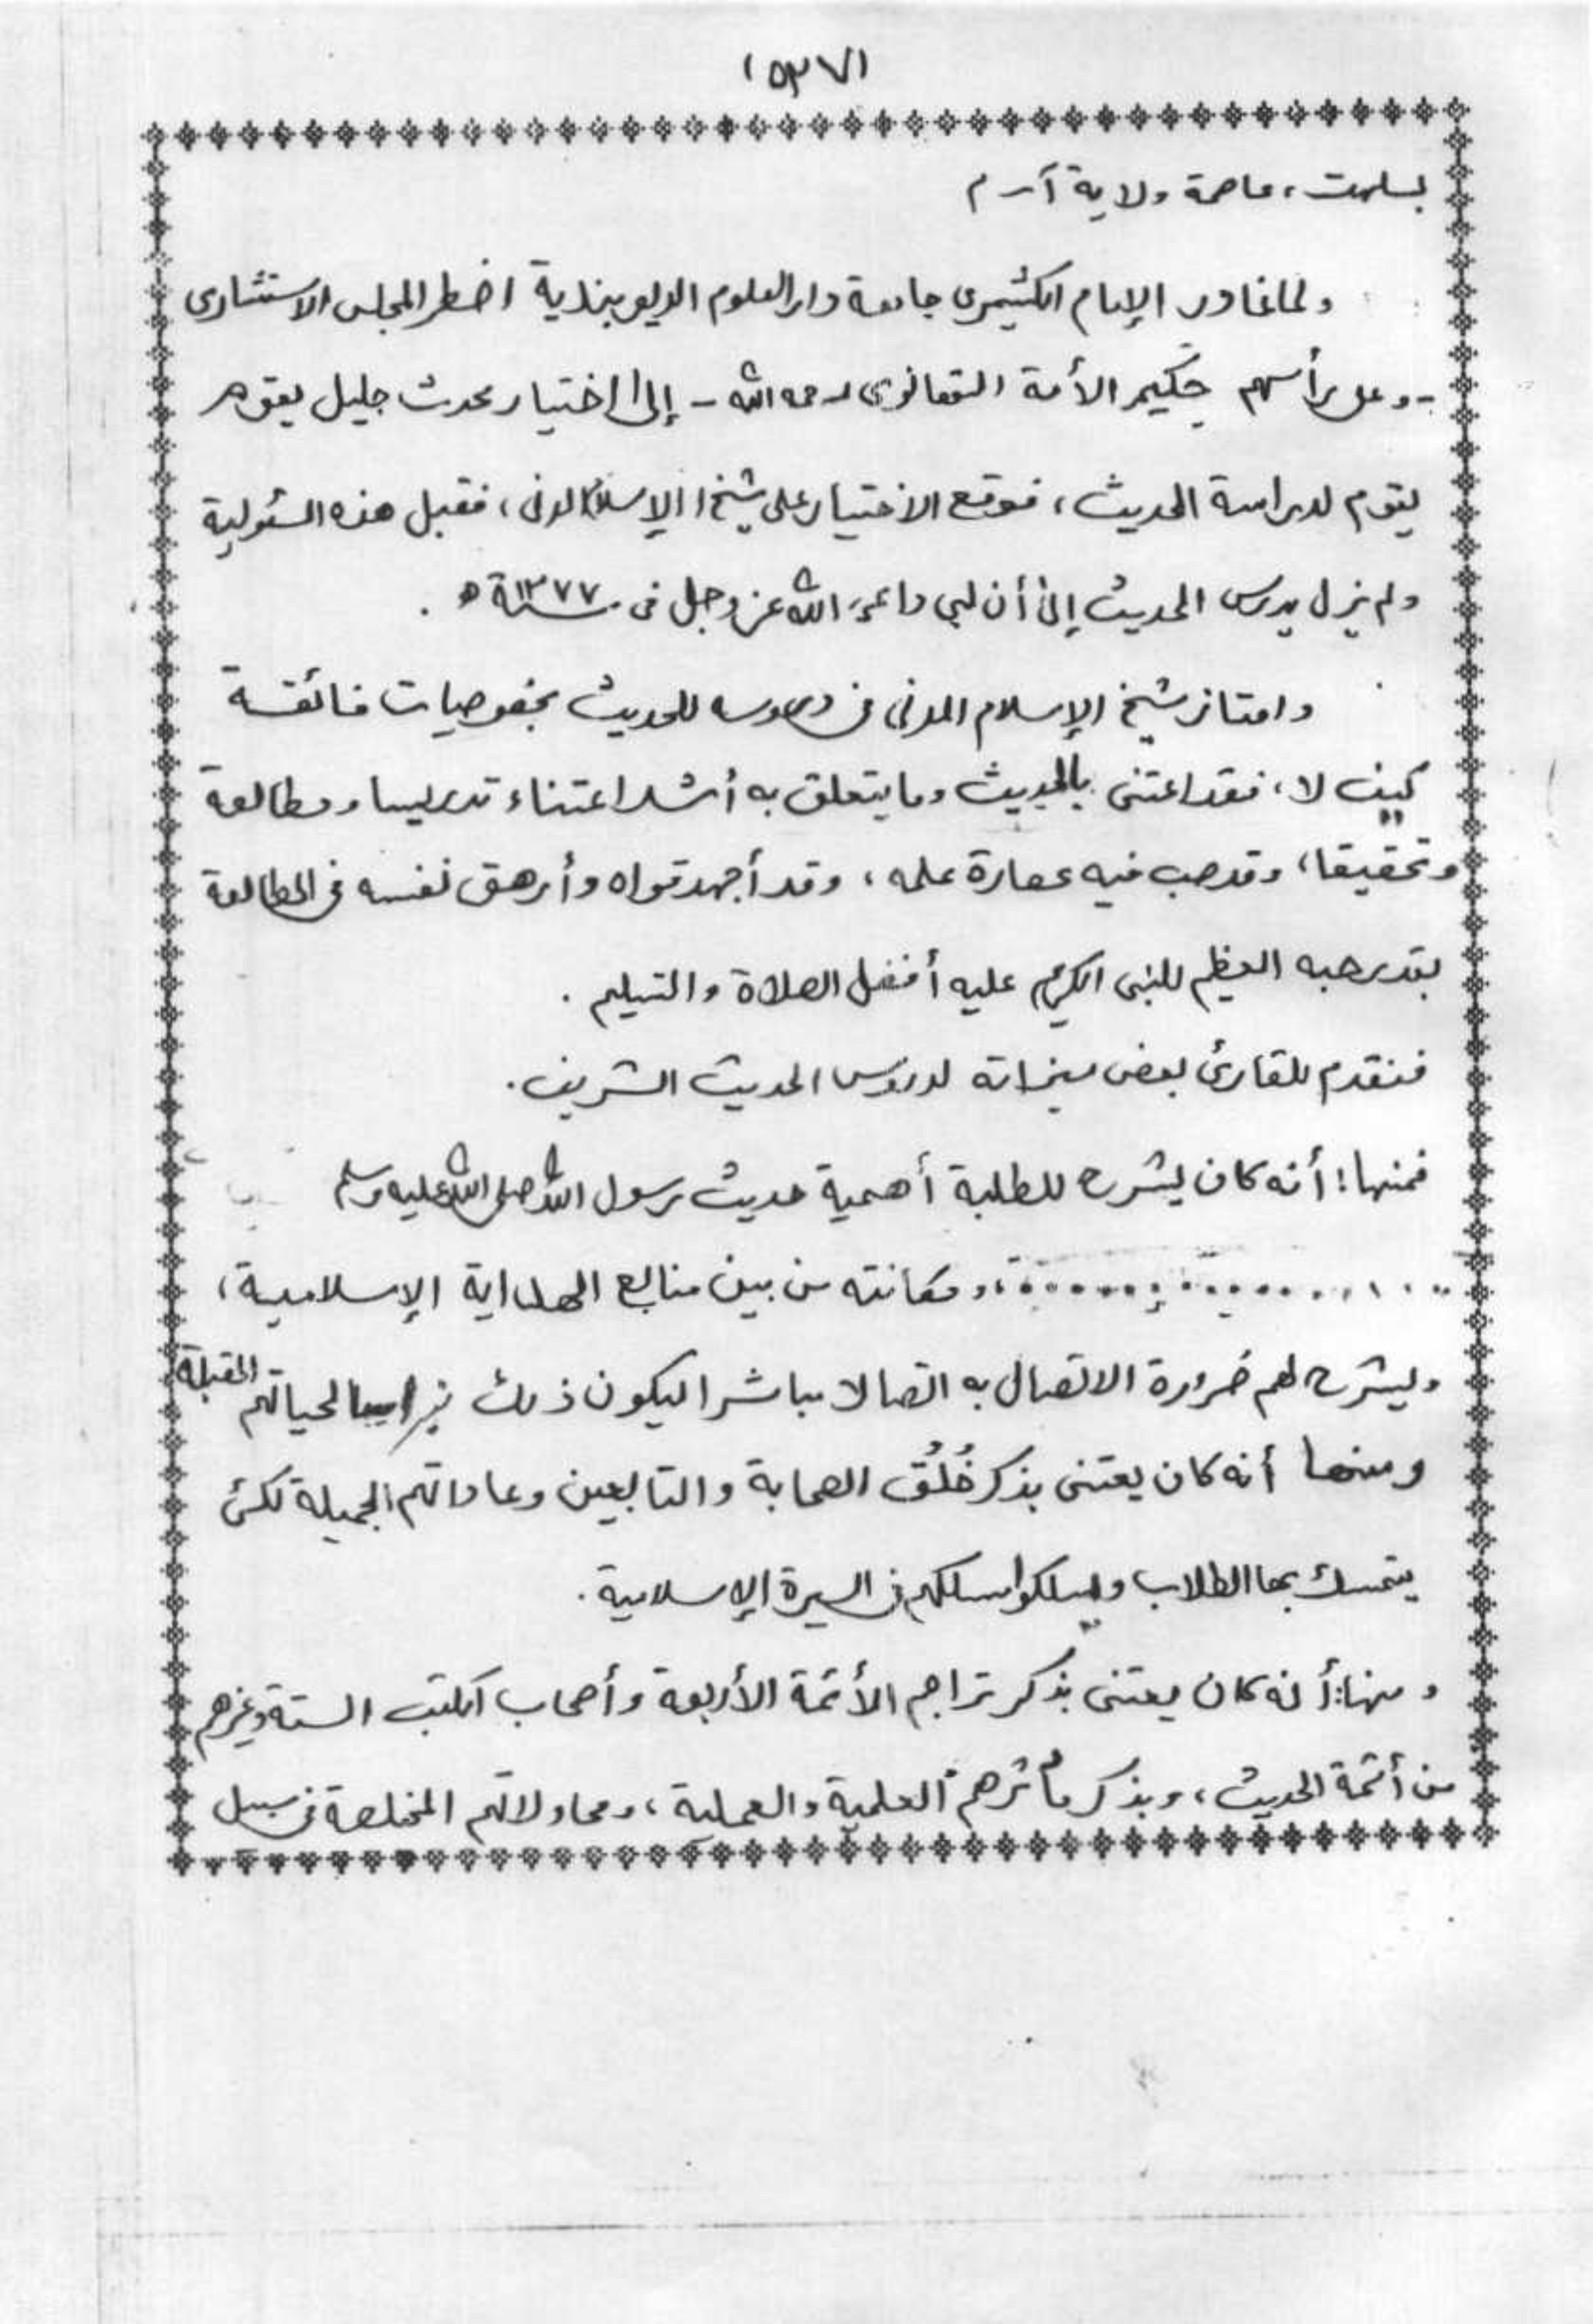 (٥٣٧)
بسلهت، عاصمة ولاية آسام
ولما غادر الإمام الكشيمرى جامعة دار العلوم الديوبندية اضطر المجلس الاستشارى
- وعلى رأسهم حكيم الأمة التهانوى رحمه الله - إلى اختيار محدث جليل
يقوم لدراسة الحديث، فوقع الاختيار على شيخ الإسلام المدنى، فقبل هذه المسئولية
ولم يزل يدرس الحديث إلى أن لبى داعى الله عز وجل فى سنة ١٣٧٧ ھ .
وامتاز شيخ الإسلام المدنى فى دروسه للحديث بخصوصيات فائقة
كيف لا، فقد اعتنى بالحديث وما يتعلق به أشد اعتناء تدريسا ومطالعة
وتحقيقا، وقد صب فيه عصارة علمه، وقد أجهد قواه وأرهق نفسه فى المطالعة
بقدر حبه العظيم للنبى الكريم عليه أفضل الصلاة والتسليم .
فنقدم للقارئ بعض ميزاته لدروس الحديث الشريف .
فمنها: أنه كان يشرح للطلبة أهمية حديث رسول الله صلى الله عليه وسلم
..................، ومكانته من بين منابع الهداية الإسلامية،
وليشرح لهم ضرورة الاتصال به اتصالا مباشرا ليكون ذلك نبراسا لحياتهم المقبلة
ومنها أنه كان يعتنى بذكر خُلُق الصحابة والتابعين وعاداتهم الجميلة لكى
يتمسك بها الطلاب ويسلكوا مسلكهم فى السيرة الإسلامية .
ومنها: أنه كان يعتنى بذكر تراجم الأئمة الأربعة وأصحاب الكتب الستة وغيرهم
من أئمة الحديث، وبذكر مآثرهم العلمية والعملية، ومحاولاتهم المخلصة فى سبيل